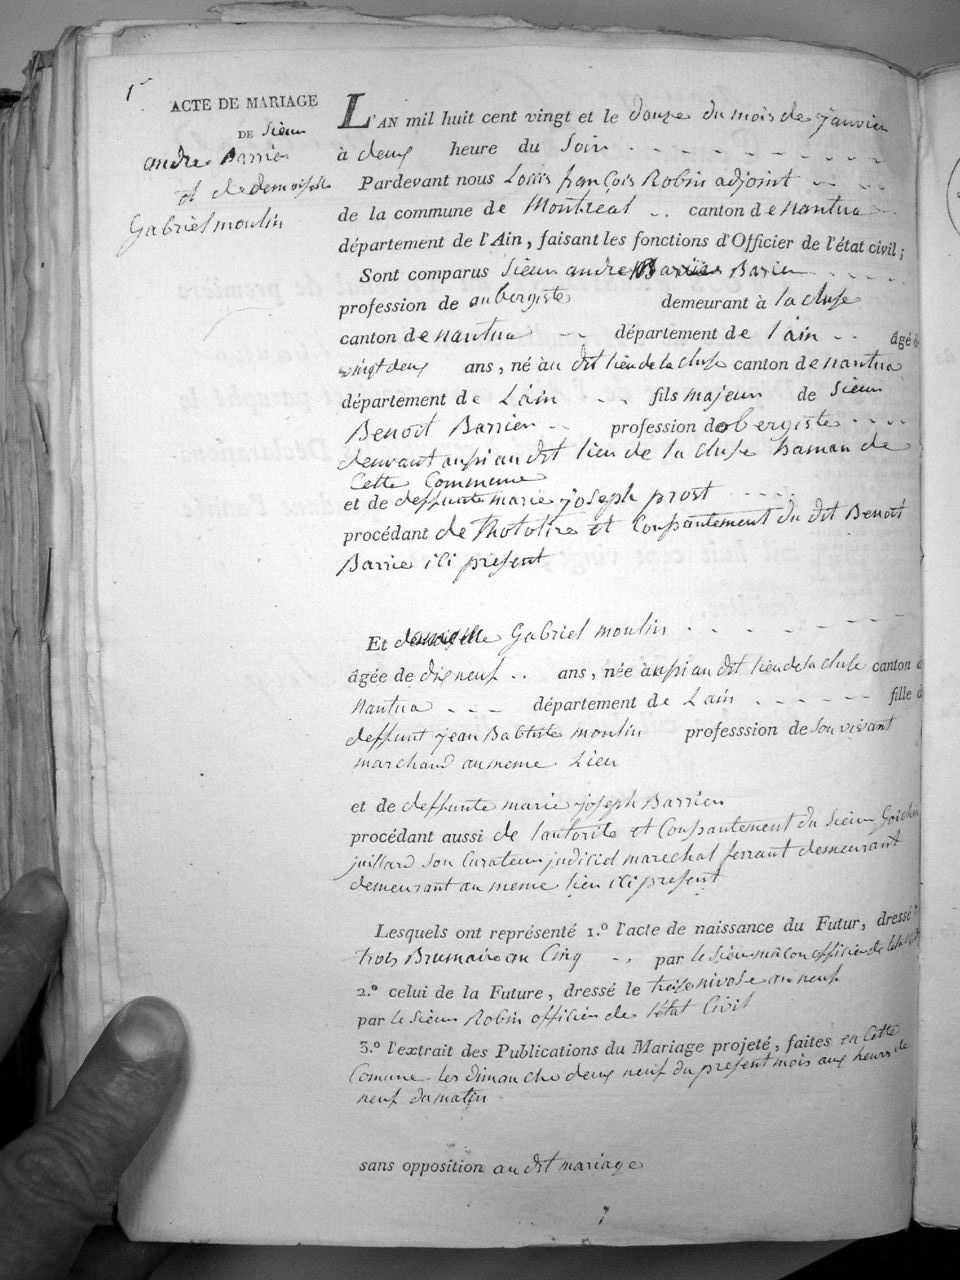 1
ACTE DE MARIAGE
DE Sieur
andre Barrier
et de demoiselle
Gabriel moulin
L'AN mil huit cent vingt et le douze du mois de janvier
à deux heure du Soir
Pardevant nous Louis françois Robin adjoint
de la commune de Montreal canton de nantua
département de l'Ain, faisant les fonctions d'Officier de l'état civil;
Sont comparus Sieur andre Barrier Barier
profession de aubergiste demeurant à la cluse
canton de nantua département de l'ain âgé de
vingt deux ans, né à au dit lieu de la cluse canton de nantua
département de L'ain fils majeur de Sieur
Benoit Barrier profession de obergiste
demurant aussi au dit lieu de la cluse hamau de
Cette Commune
et de deffunte marie joseph prost
procédant de Lhotolire et Consantement du dit Benoit
Barrie ici present
Et demoiselle Gabriel moulin
âgée de dix neuf ans, née à aussi au dit lieu de la cluse canton d
nantua département de Lain fille d
deffunt jean Babtiste moulin professsion de Son vivant
marchand au meme Lieu
et de deffunte marie joseph Barrier
procédant aussi de lautorite et Consantement du Sieur
juillard Son Curateur judiciel marechal ferrant demeurant
demeurant au meme lieu ici present
Lesquels ont représenté 1.º l'acte de naissance du Futur, dressé l
trois Brumaire an Cinq par le Sieur officier de
2.º celui de la Future, dressé le treise nivose an neuf
par le Sieur Robin officier de l'état Civil
3.º l'extrait des Publications du Mariage projeté, faites en Cette
Comune les dimanche deux neuf du present mois aux heures de
neuf du matin
sans opposition au dit mariage